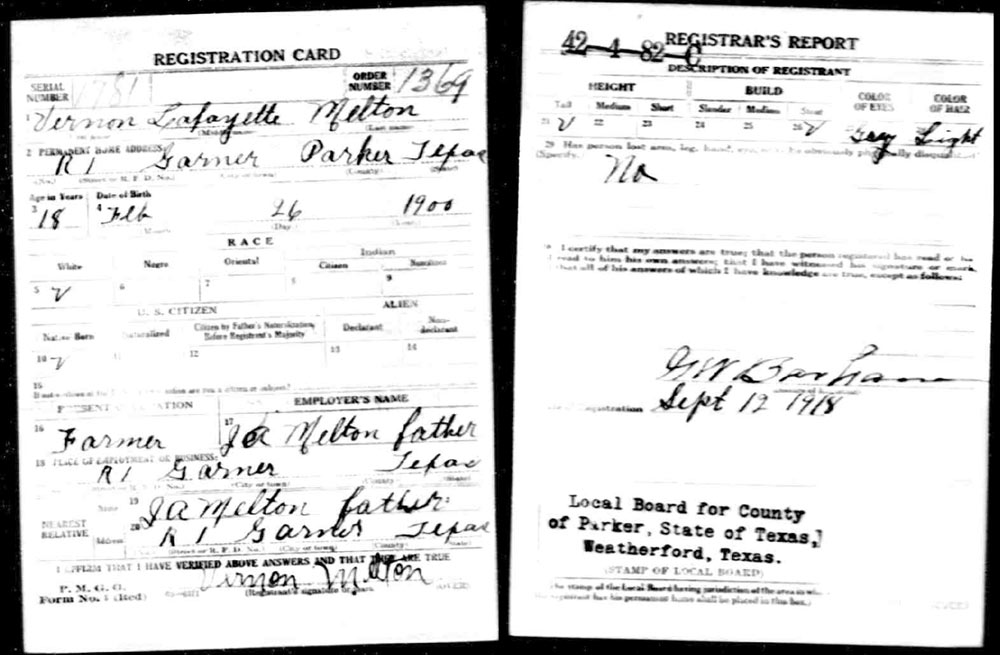 REGISTRATION CARD
SERIAL NUMBER 1781 ORDER NUMBER 1369
1 Vernon Lafayette Melton
(Middle name) (Last name)
2 PERMANENT HOME ADDRESS:
R1 Garner Parker Texas
(No.) (Street or R. F. D. No.) (City or town) (County) (State)
Age in Years Date of Birth
3 18 4 Feb 26 1900
Month (Day) (Year)
RACE
White Negro Oriental Indian
Citizen Noncitizen
5 V 6 7 8 9
U. S. CITIZEN ALIEN
Native Born Naturalized Citizen by Father's Naturalization Before Registrant's Majority Declarant Non-declarant
10 V 11 12 13 14
15
PRESENT OCCUPATION EMPLOYER'S NAME
16 Farmer 17 J A Melton father
18 PLACE OF EMPLOYMENT OR BUSINESS:
R1 Garner Texas
(City or town) (State)
NEAREST RELATIVE
Name 19 J A Melton father
Address 20 R 1 Garner Texas
(Street or R. F. D. No.) (City or town) (County) (State)
I AFFIRM THAT I HAVE VERIFIED ABOVE ANSWERS AND THAT THEY ARE TRUE
P. M. G. O.
Form No. 1 (Red)
Vernon Melton
(Registrant's signature or mark) (OVER)
REGISTRAR'S REPORT
42-4-82-C
DESCRIPTION OF REGISTRANT
HEIGHT BUILD COLOR OF EYES COLOR OF HAIR
Tall Medium Short Slender Medium Stout
21 V 22 23 24 25 26 V Gray Light
29 Has person lost arm, leg, hand, eye, or is he obviously physically disqualified?
(Specify.)
No
30 I certify that my answers are true; that the person registered has read or has
read to him his own answers; that I have witnessed his signature or mark,
that all of his answers of which I have knowledge are true, except as follows:
G W
Registration Sept 12 1918
Local Board for County
of Parker, State of Texas,
Weatherford, Texas.
(STAMP OF LOCAL BOARD)
The stamp of the Local Board having jurisdiction of the area in which
the registrant has his permanent home shall be placed in this box.)
(OVER)